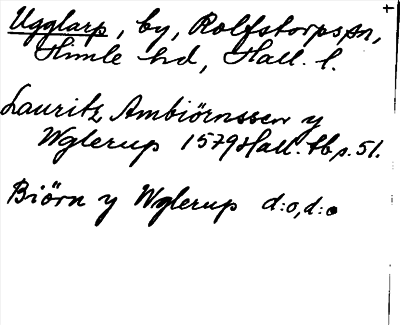 Ugglarp, by, Rolfstorps sn,
Himle hd, Hall. l.
Lauritz Ambiörnssen y
Wglerup 1579 Hall. tb s. 51.
Biörn y Wglerup d:o, d:o